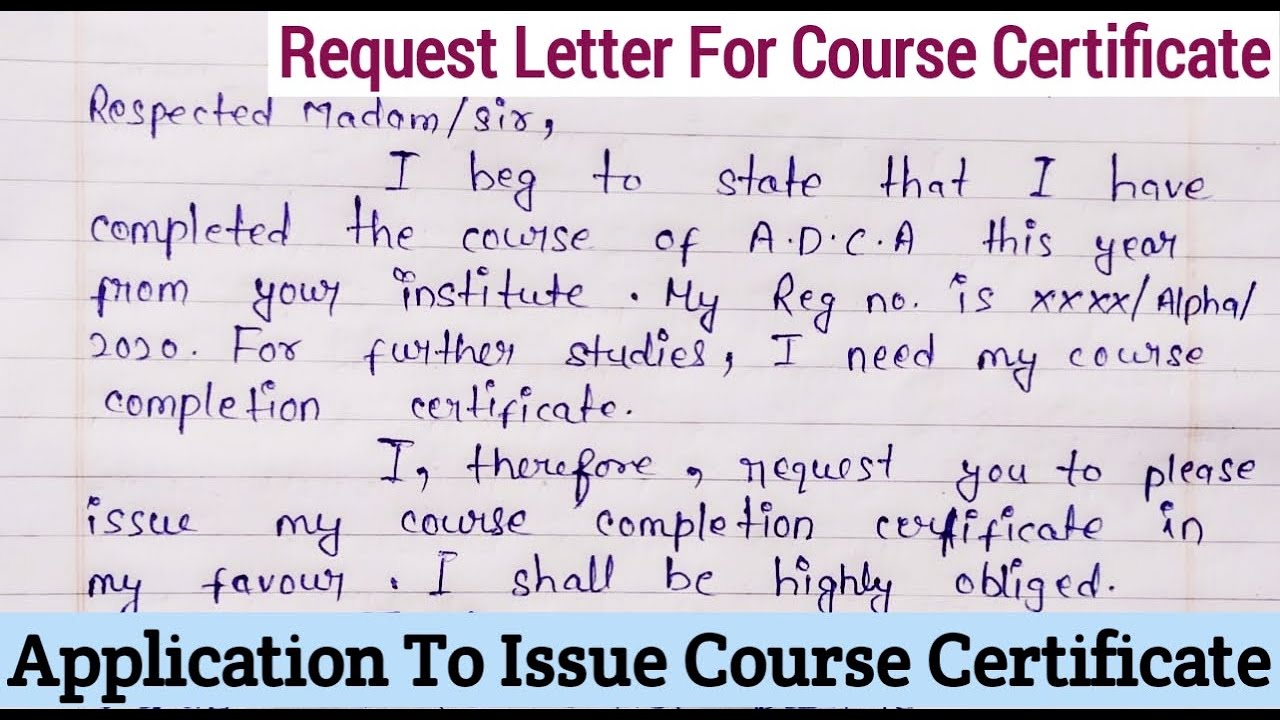 Request Letter For Course Certificate
Respected Madam/Sir,
I beg to state that I have
completed the course of A.D.C.A this year
from your institute. My Reg no. is xxxx/Alpha/
2020. For further studies, I need my course
completion certificate.
I, therefore, request you to please
issue my course completion certificate in
my favour. I shall be highly obliged.
Application To Issue Course Certificate